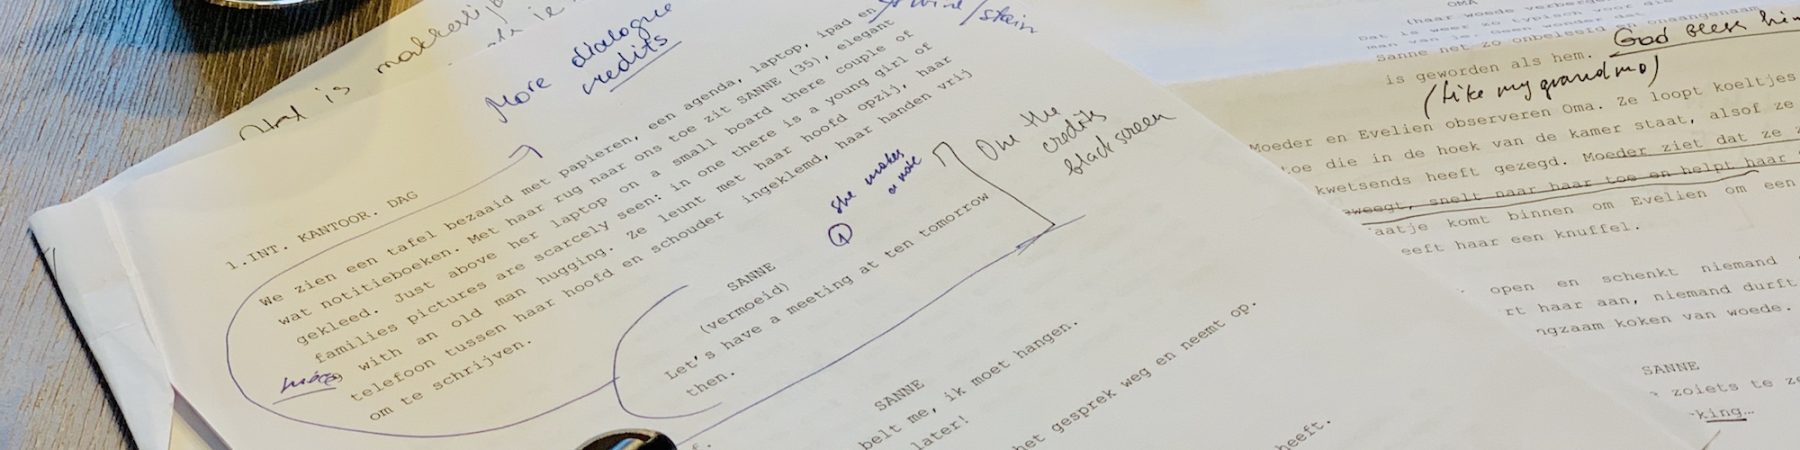 More dialogue
credits
wine/stain
1.INT. KANTOOR. DAG
We zien een tafel bezaaid met papieren, een agenda, laptop, ipad en
wat notitieboeken. Met haar rug naar ons toe zit SANNE (35), elegant
gekleed. Just above her laptop on a small board there couple of
families pictures are scarcely seen: in one there is a young girl of
with an old man hugging. Ze leunt met haar hoofd opzij, haar
telefoon tussen haar hoofd en schouder ingeklemd, haar handen vrij
om te schrijven.
she makes
a note
1
On the
credits
black screen
SANNE
(vermoeid)
Let's have a meeting at ten tomorrow
then.
SANNE
belt me, ik moet hangen.
later!
het gesprek weg en neemt op.
heeft.
OMA
(haar woede
man van je.
Sanne net zo onbeleefd en onaangenaam
is geworden als hem.
God
(like my grandma)
Moeder en Evelien observeren Oma. Ze loopt koeltjes
toe die in de hoek van de kamer staat, alsof ze
kwetsends heeft gezegd. Moeder ziet dat ze
beweegt, snelt naar haar toe en helpt haar
aatje komt binnen om Evelien om een
eeft haar een knuffel.
open en schenkt niemand
rt haar aan, niemand durft
ngzaam koken van woede.
SANNE
zoiets te
king…